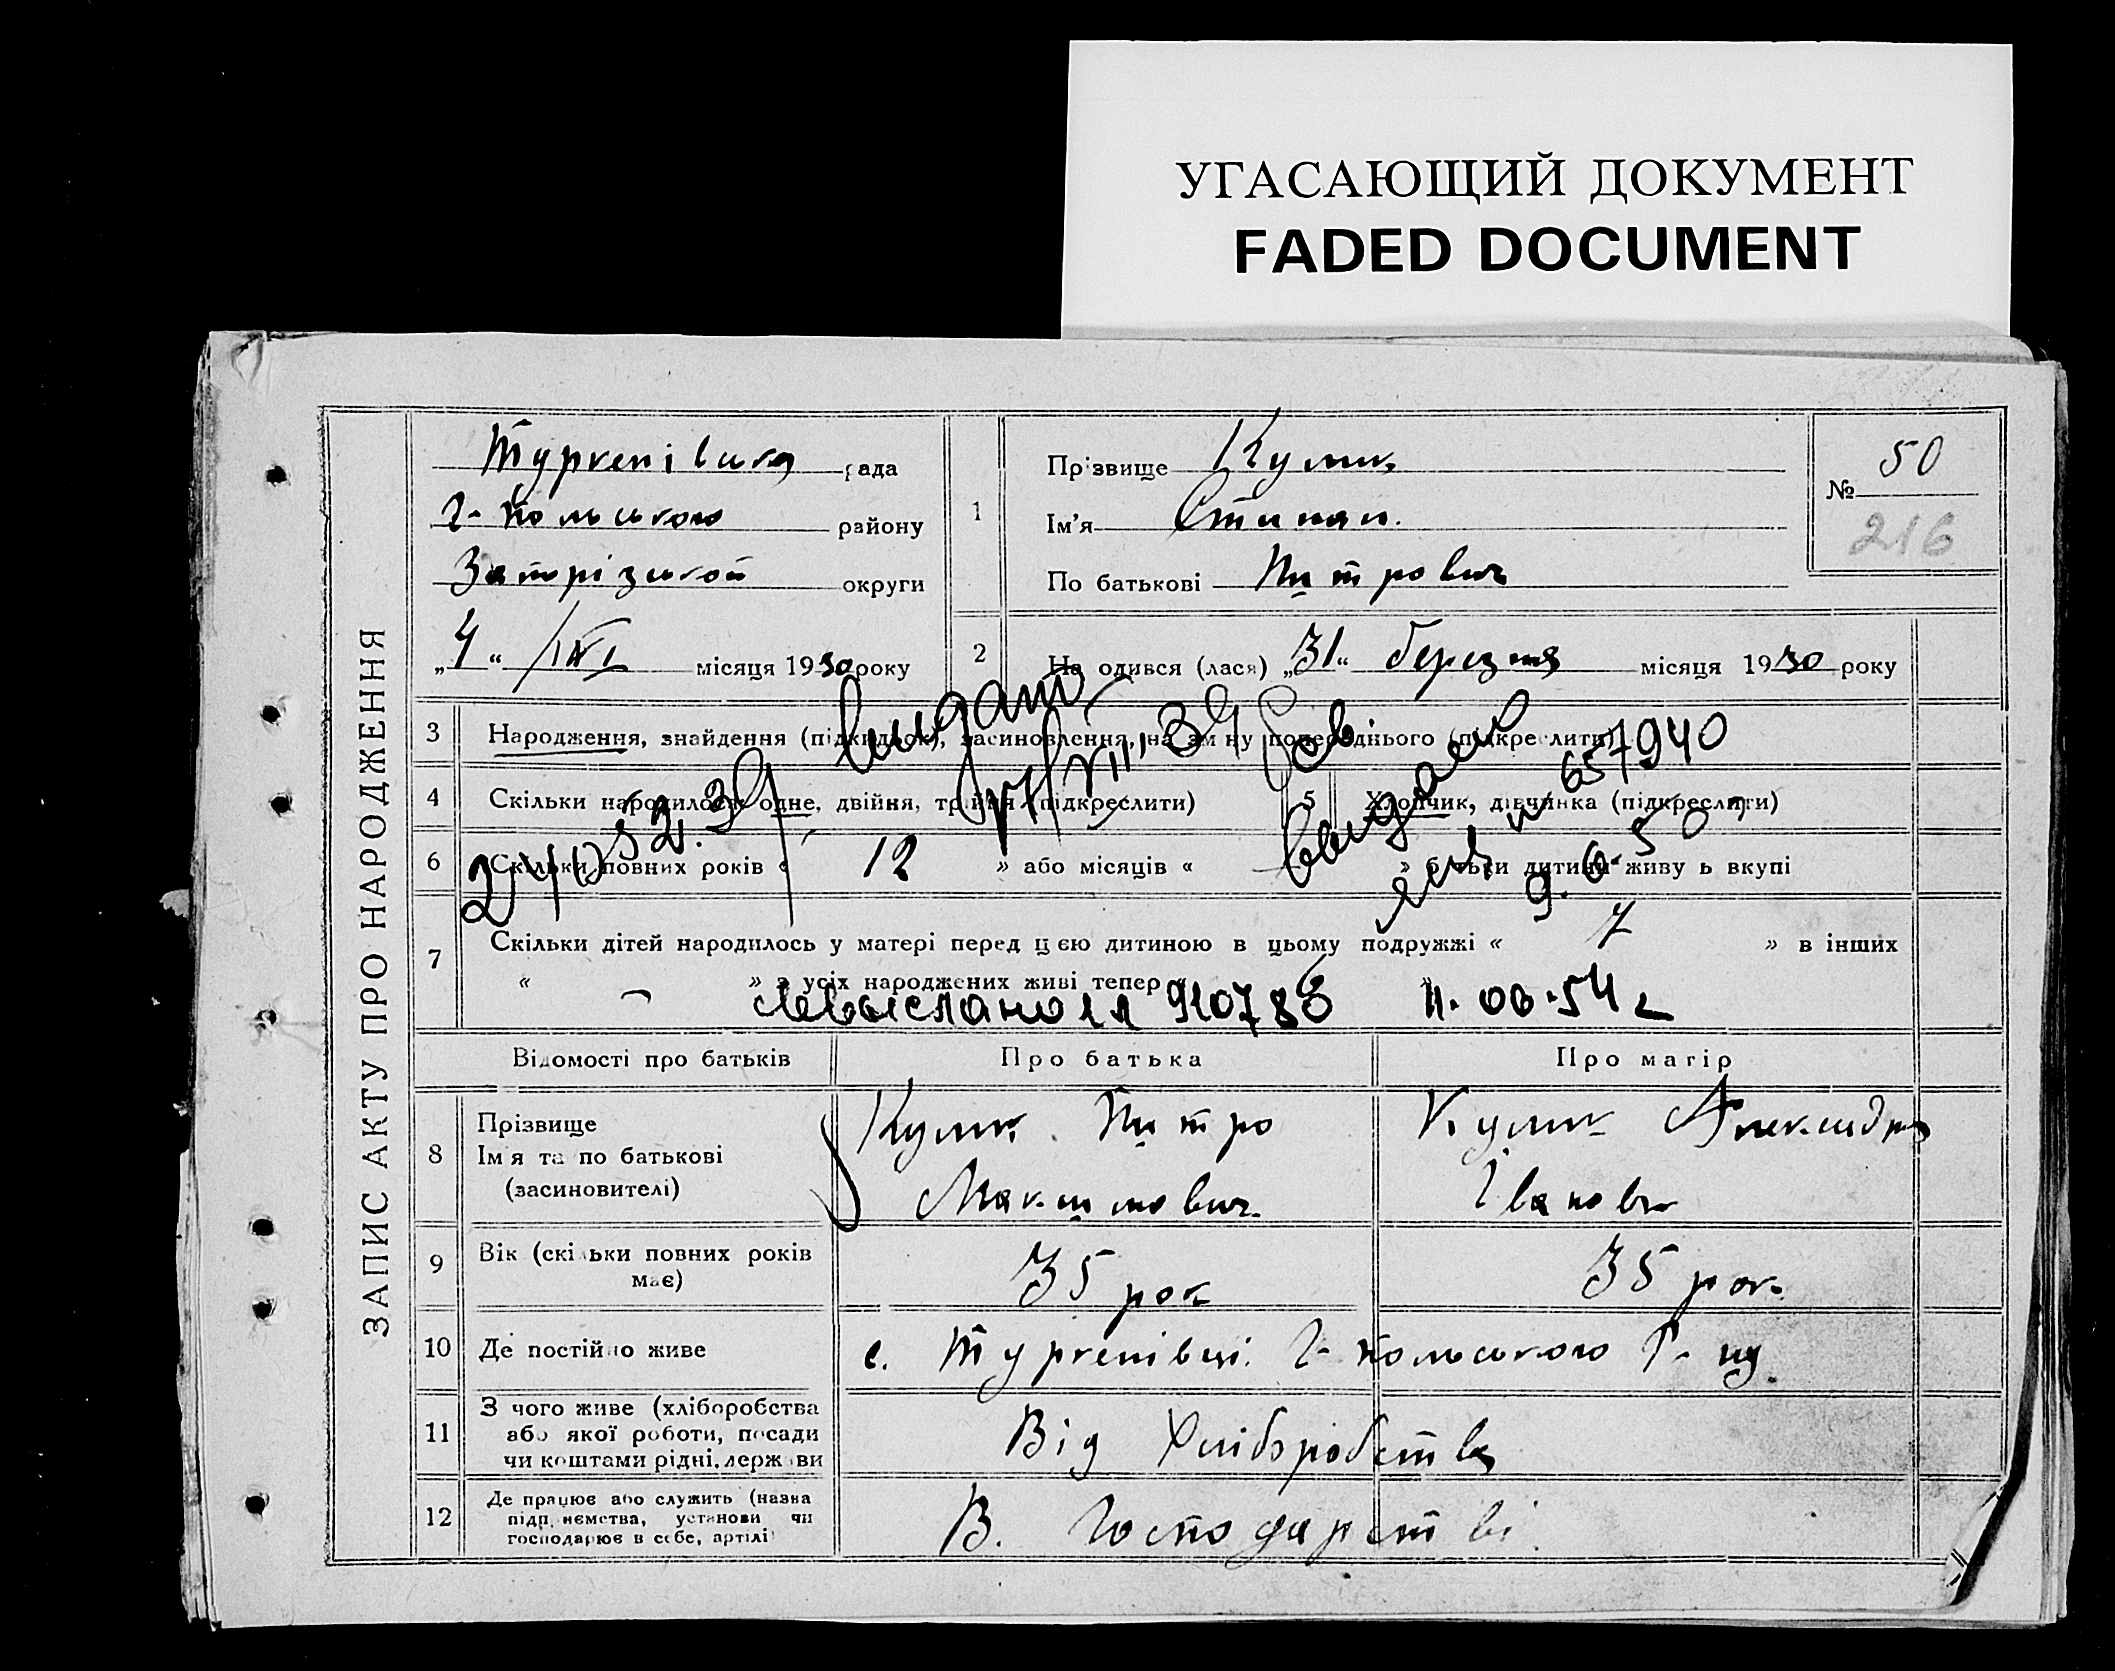 УГАСАЮЩИЙ ДОКУМЕНТ
FADED DOCUMENT
ЗАПИС АКТУ ПРО НАРОДЖЕННЯ
Туркенівська рада
Г-Польського району
Запорізької округи
„4“ IV місяця 1930 року
1
Прізвище Кулик
Ім'я Степан.
По батькові Петрович
№ 50
216
2 Народився (лася) „31“ березня місяця 1930 року
3 Народження, знайдення (підкидьок), засиновлення, на зміну попереднього (підкреслити)
4 Скільки народилось: одне, двійня, трійня (підкреслити)
5 Хлопчик, дівчинка (підкреслити)
6 Скільки повних років « 12 » або місяців « — » батьки дитини живуть вкупі
7 Скільки дітей народилось у матері перед цією дитиною в цьому подружжі « 7 » в інших
« — » з усіх народжених живі тепер « »
VII 39
выдано
№ 657940
9.6.50
выслано 910788 11.06.54 г
Відомості про батьків
Про батька
Про матір
8 Прізвище
Ім'я та по батькові
(засиновителі)
Кулик Петро
Максимович.
Кулик Александра
Івановн
9 Вік (скільки повних років
має)
35 рок
35 рок.
10 Де постійно живе
с. Туркенівці. Г-Польського Р-ну.
11 З чого живе (хліборобства
або якої роботи, посади
чи коштами рідні, держави
Від Хліборобства
12 Де працює або служить (назва
підприємства, установи чи
господарює в себе, артілі)
В. Господарстві.